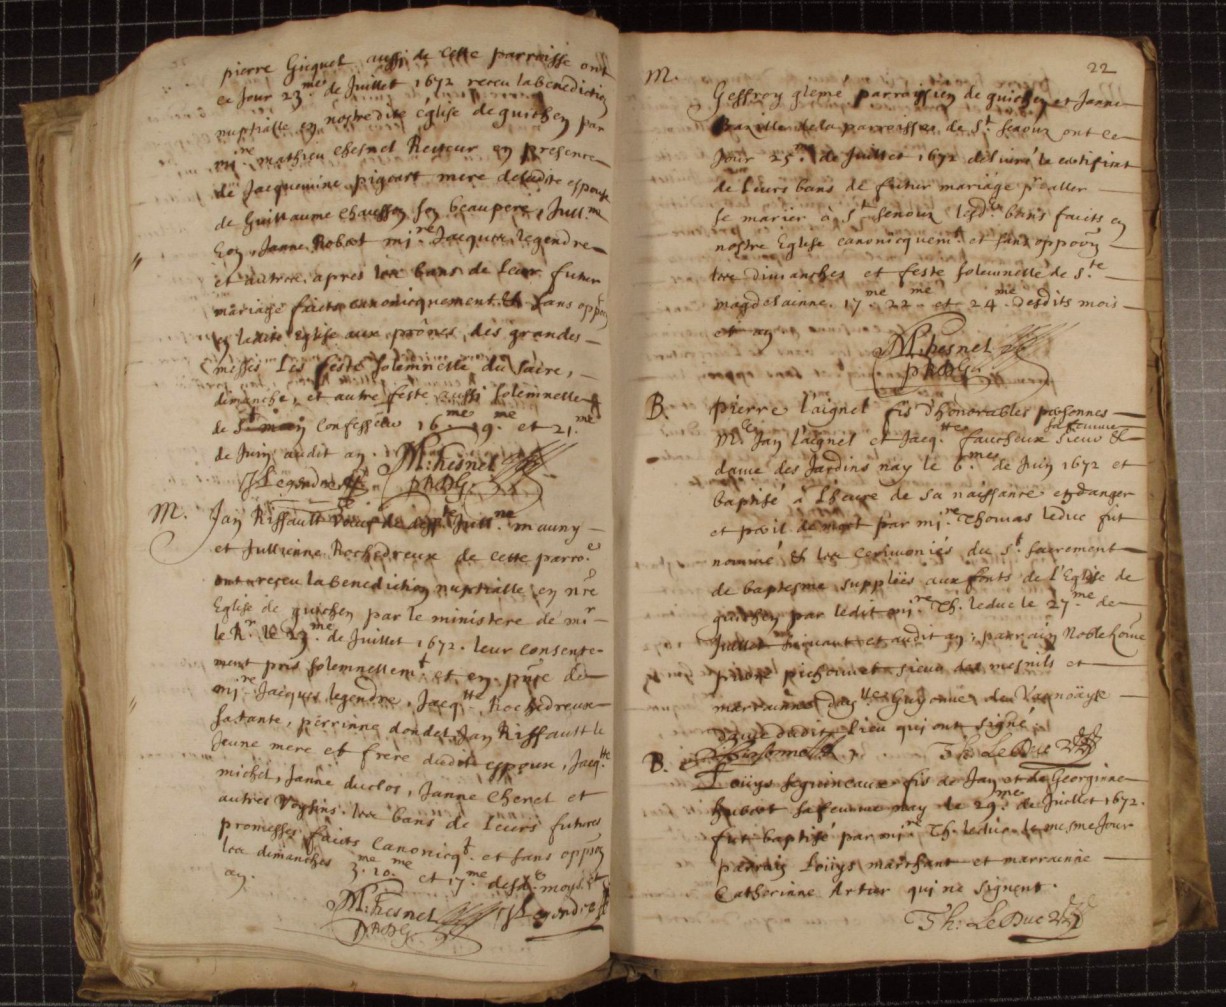 pierre Gicquel aussi de cette parroisse ont
ce jour 23me de Juillet 1672 receu la benediction
nuptialle en nostredite église de guichen par
mire mathieu chesnel Recteur en presence
de Jacquemine pigeart mere de ladite espouse
de Guillaume chausson son beau pere, Jull.ne
Janne Robert mire Jacques legendre
et autres. apres les bans de leur futur
mariage faits canonicquement & sans oppon
en ladite église aux prônes des grandes
messes les feste solemnelle du sacre,
dimanche, et autre feste aussi solemnelle
de St confesseur 16me 19me et 21me
de Juin audit an. M: Chesnel
J Legendre PRDG.
M. Jan Riffault veuf de Jull.ne mauny
et Jullienne Rochedreux de cette parrsse
ont receu la benediction nuptialle en nre
Eglise de guichen par le ministere de mir
le Rr le 23me de Juillet 1672. leur consente-
ment pris solemnellemt et en pnce de
mire Jacques legendre, Jacqtte Rochedreux
sa tante, perrinne dondel, Jan Riffault le
jeune mere et frere dudit espoux, Jacqtte
michel, Janne duclos, Janne chenel et
autres les bans de leurs futures
promesses faits canonicqt. et sans oppon
les dimanches 3. 10me et 17me desds. moys et
an.
M: Chesnel J Legendre
PRDG.
22
M.
Geffroy glemé parroissien de guichen et Janne
de la parroisse de St Senoux ont ce
Jour 25me de Juillet 1672 délivré le certificat
de leurs bans de futur mariage pr aller
se marier à St Senoux lesds. bans faicts en
nostre Eglise canonicquemt. et sans oppon
les dimanches et feste solemnelle de Ste
magdelainne. 17me 22me et 24me desdits mois
et an
M: Chesnel
PRDG.
B. pierre l'aignel fis d'honorables personnes
Me. Jan l'aignel et Jacqtte faucheux sa femme Sieur &
dame des Jardins nay le 6mes de Juin 1672 et
baptisé à l'heure de sa naissance en danger
et peril de mort par mire Thomas leduc fut
nommé & les cerimoniés du St. Sacrement
de baptesme supplées aux fonts de l'Eglise de
guichen par ledit mire Th. leduc le 27me de
Juillet suivant et audit an: parrain Noble hõme
pierre sieur des mesnils et
marrainne dlle Guyonne
dudit lieu qui ont signé.
Th: Le Duc
B. Loüys seguineaux fis de Jan et de Georginne
hubert sa femme nay le 29me de Juillet 1672.
fut baptisé par mire Th. leduc le mesme Jour
parrain Loüys marchant et marrainne
Catherinne Artur qui ne signent.
Th: Le Duc